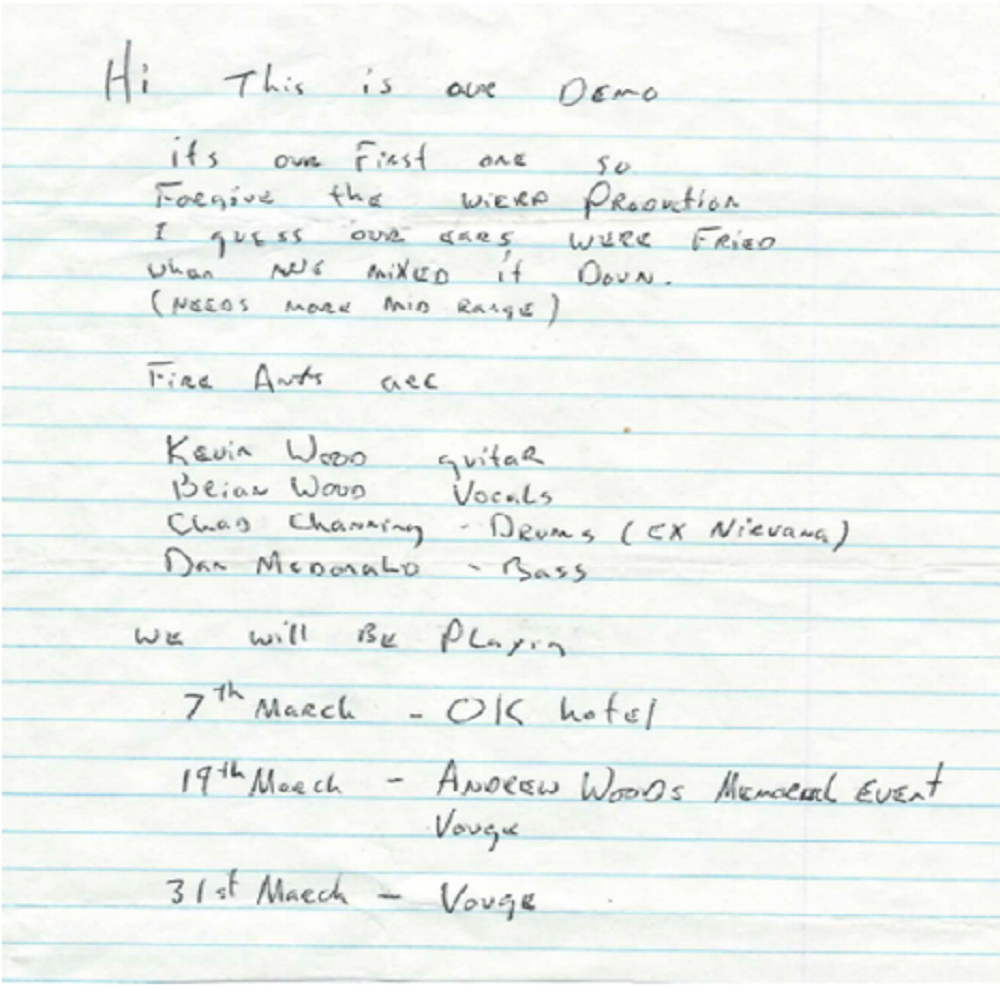 Hi This is our DEMO
its our First one so
Forgive the WIERD PRODUCTION
I guess our ears were FRIED
when we MIXED it DOWN.
(NEEDS MORE MID RANGE)
FIRE ANTS are
KEVIN WOOD guitar
BRIAN WOOD Vocals
CHAD Channing - DRUMS (EX NIRVANA)
DAN McDONALD - BASS
WE will BE PLayin
7th MARCH - OK hotel
19th MARCH - ANDREW WOODS MEMORIAL EVENT
Vouge
31st MARCH - Vouge